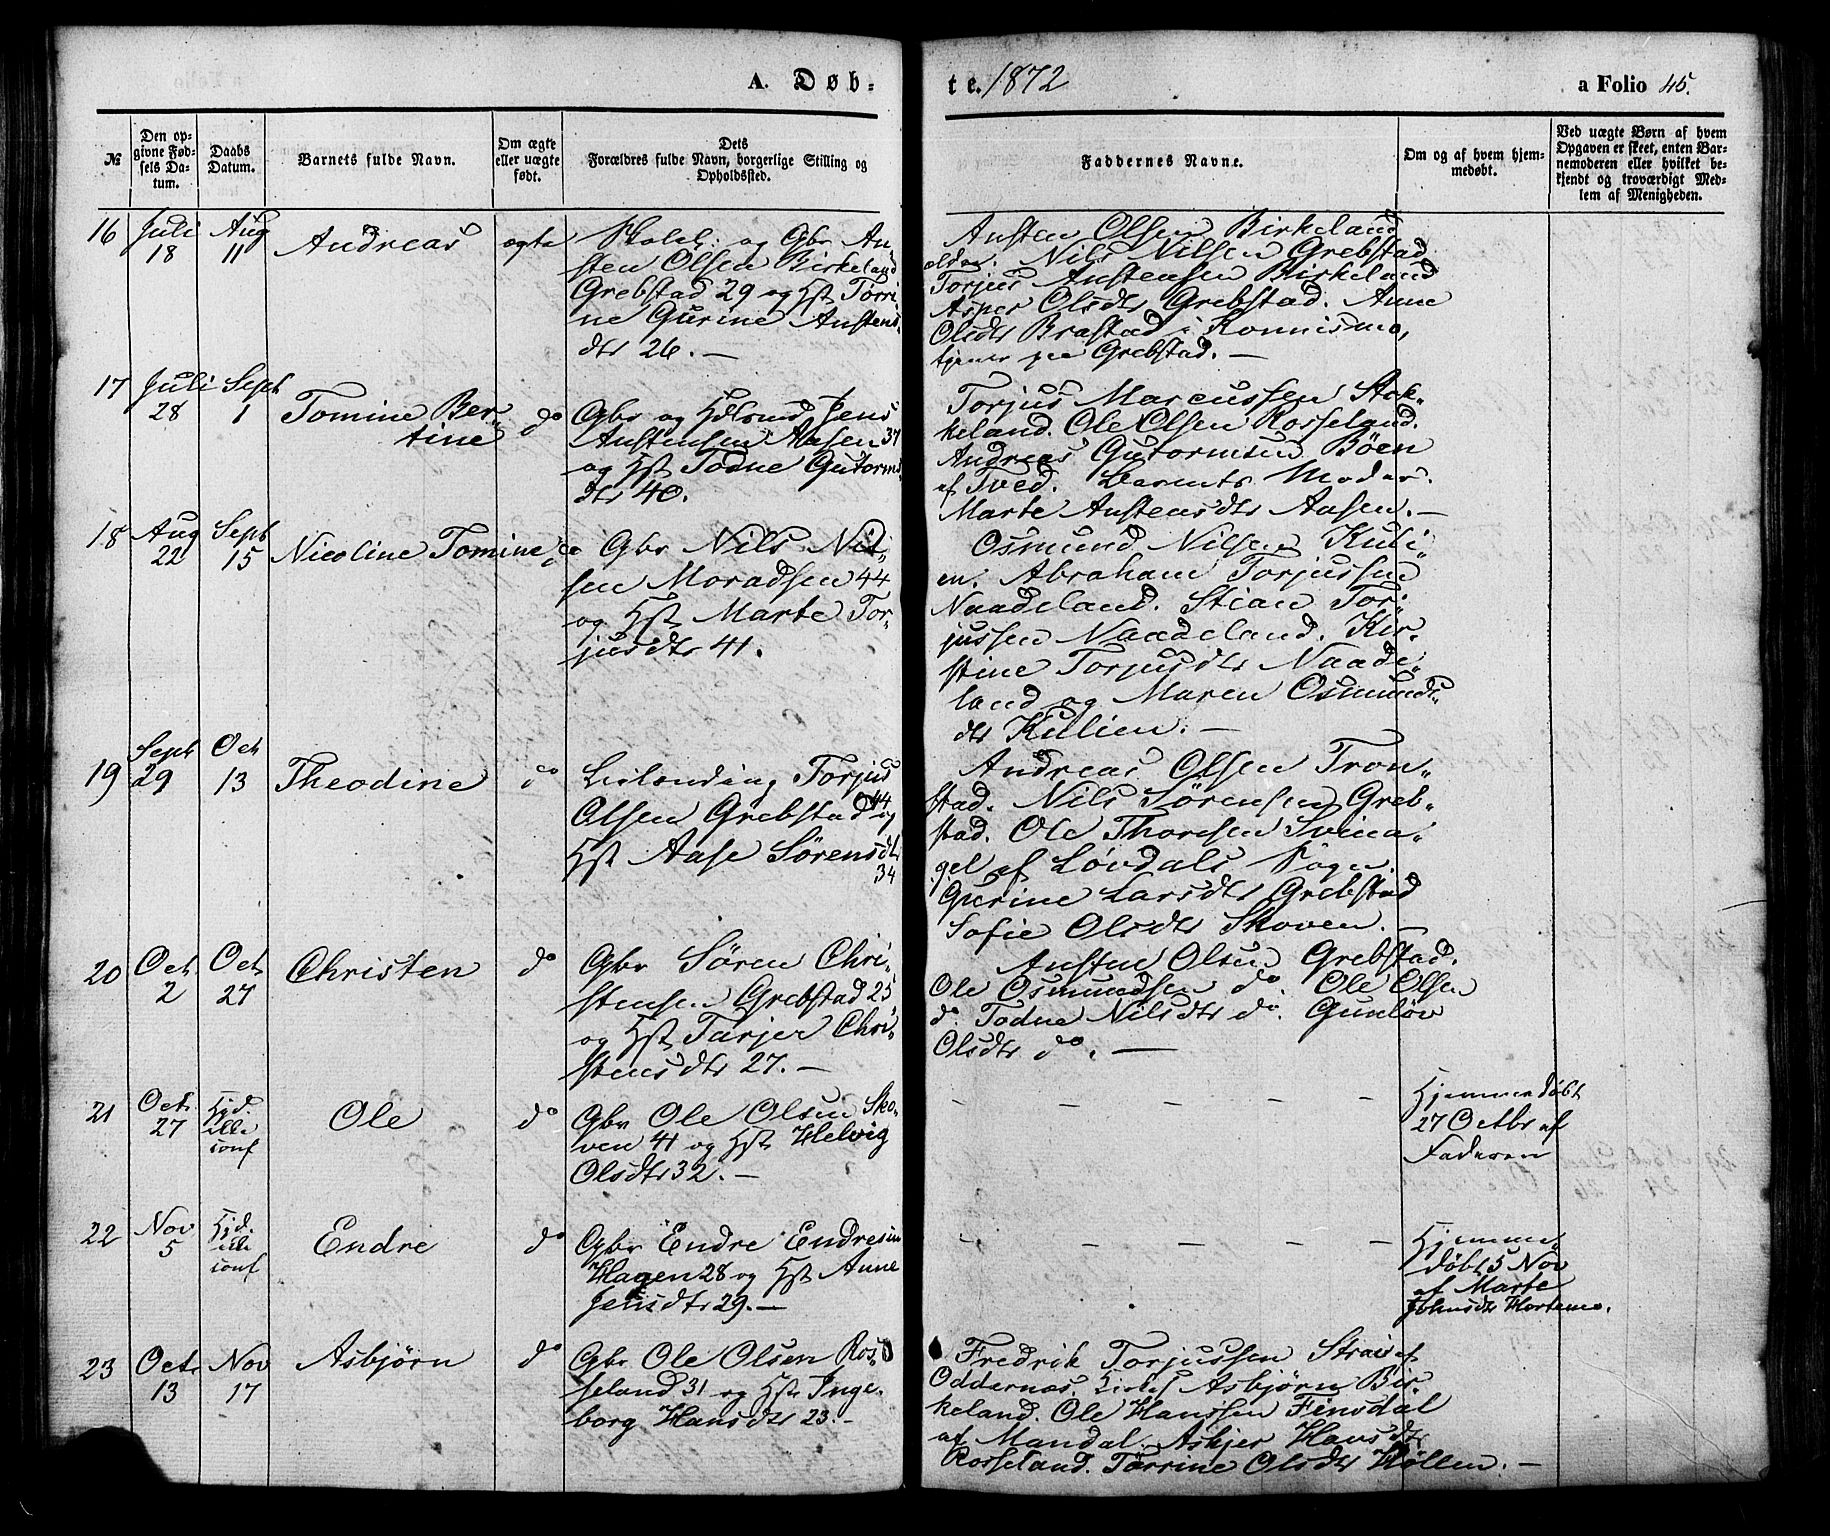 A. Døb-
te. 1872
a Folio 45.
№
Den op-
givne Fød-
sels Da-
tum.
Daabs
Datum.
Barnets fulde Navn.
Om ægte
eller uægte
født.
Dets
Forældres fulde Navn, borgerlige Stilling og
Opholdssted.
Faddernes Navne.
Om og af hvem hjem-
medøbt.
Ved uægte Børn af hvem
Opgaven er skeet, enten Bar-
nemoderen eller hvilket be-
kjendt og troværdigt Med-
lem af Menigheden.
16 Juli 18 Aug 11 Andreas ægte
og Gbr An-
sten Olsen Birkeland
Grebstad 29 og Hst Torri-
ne Gurine Anstens-
dtr 26. —
Ansten Olsen Birkeland
Nils Nilsen Grebstad
Torjus Anstensen Birkeland
Asper Olsdtr Grebstad. Anne
Olsdtr Brastad i Konnismo,
tjener paa Grebstad. —
17 Juli 28 Sept 1 Tomine Ber-
tine do
Gbr og Jens
Anstensen Aasen 37
og Hst Todne Gutorms
dtr 40.
Torjus Marcussen Stok-
keland. Ole Olsen Rosseland.
Andreas Gutormsen Bøen
af Tved. Barnets Moder.
Marte Anstensdtr Aasen. —
18 Aug 22 Sept 15 Nicoline Tomine do
Gbr Nils Nil-
sen Moradsen 44
og Hst Marte Tor-
jusdtr 41.
Osmund Nilsen Kuli-
en. Abraham Torjussen
Naadeland. Stian Tor-
jussen Naadeland. Kir-
stine Torjusdtr Naade-
land og Maren Osmunds-
dtr Kulien. —
19 Sept 29 Oct 13 Theodine do
Torjus
Olsen Grebstad 44 og
Hst Aase Sørensdtr
34
Andreas Olsen Tron-
stad. Nils Sørensen Greb-
stad. Ole Thorsen Svina-
gel af Løvdals Sogn.
Gurine Larsdtr Grebstad
Sofie Olsdtr Skoven. —
20 Oct. 2 Oct 27 Christen do
Gbr Sören Chri-
stensen Grebstad 25
og Hst Tarjer Chri-
stensdtr 27. —
Ansten Olsen Grebstad.
Ole Osmundsen do. Ole Olsen
do. Todne Nilsdtr do. Gunlöv
Olsdtr do. —
21 Oct. 27 Hjd. conf Ole do
Gbr Ole Olsen Sko-
ven 41 og Hst Helvig
Olsdtr 32. —
— — — — —
Hjemmedøbt
27 Octbr af
Faderen
22 Nov 5 Hjd. conf Endre do
Gbr Endre Endresen
Hagen 28 og Hst Anne
Jensdtr 29. —
— — — — —
Hjemme-
døbt 5 Nov
af Marte
Johnsdtr Hortemo.
23 Oct. 13 Nov 17 Asbjørn do
Gbr Ole Olsen Ros-
seland 31 og Hst Inge-
borg Hansdtr 23. —
Fredrik Torjussen Strai af
Oddernæs. Asbjørn Bir-
keland. Ole Hanssen Finsdal
af Mandal. Askjer Hansdtr
Rosseland. Torrine Olsdtr Høllen. —